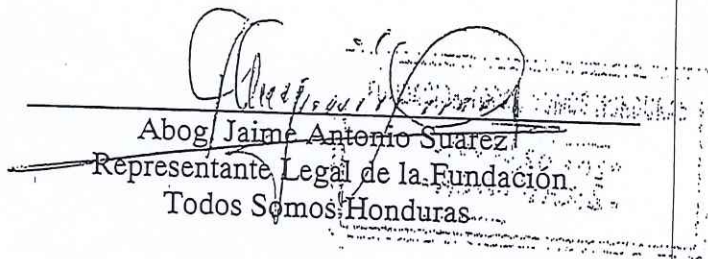 Abog. Jaime Antonio Suarez
Representante Legal de la Fundación
Todos Somos Honduras